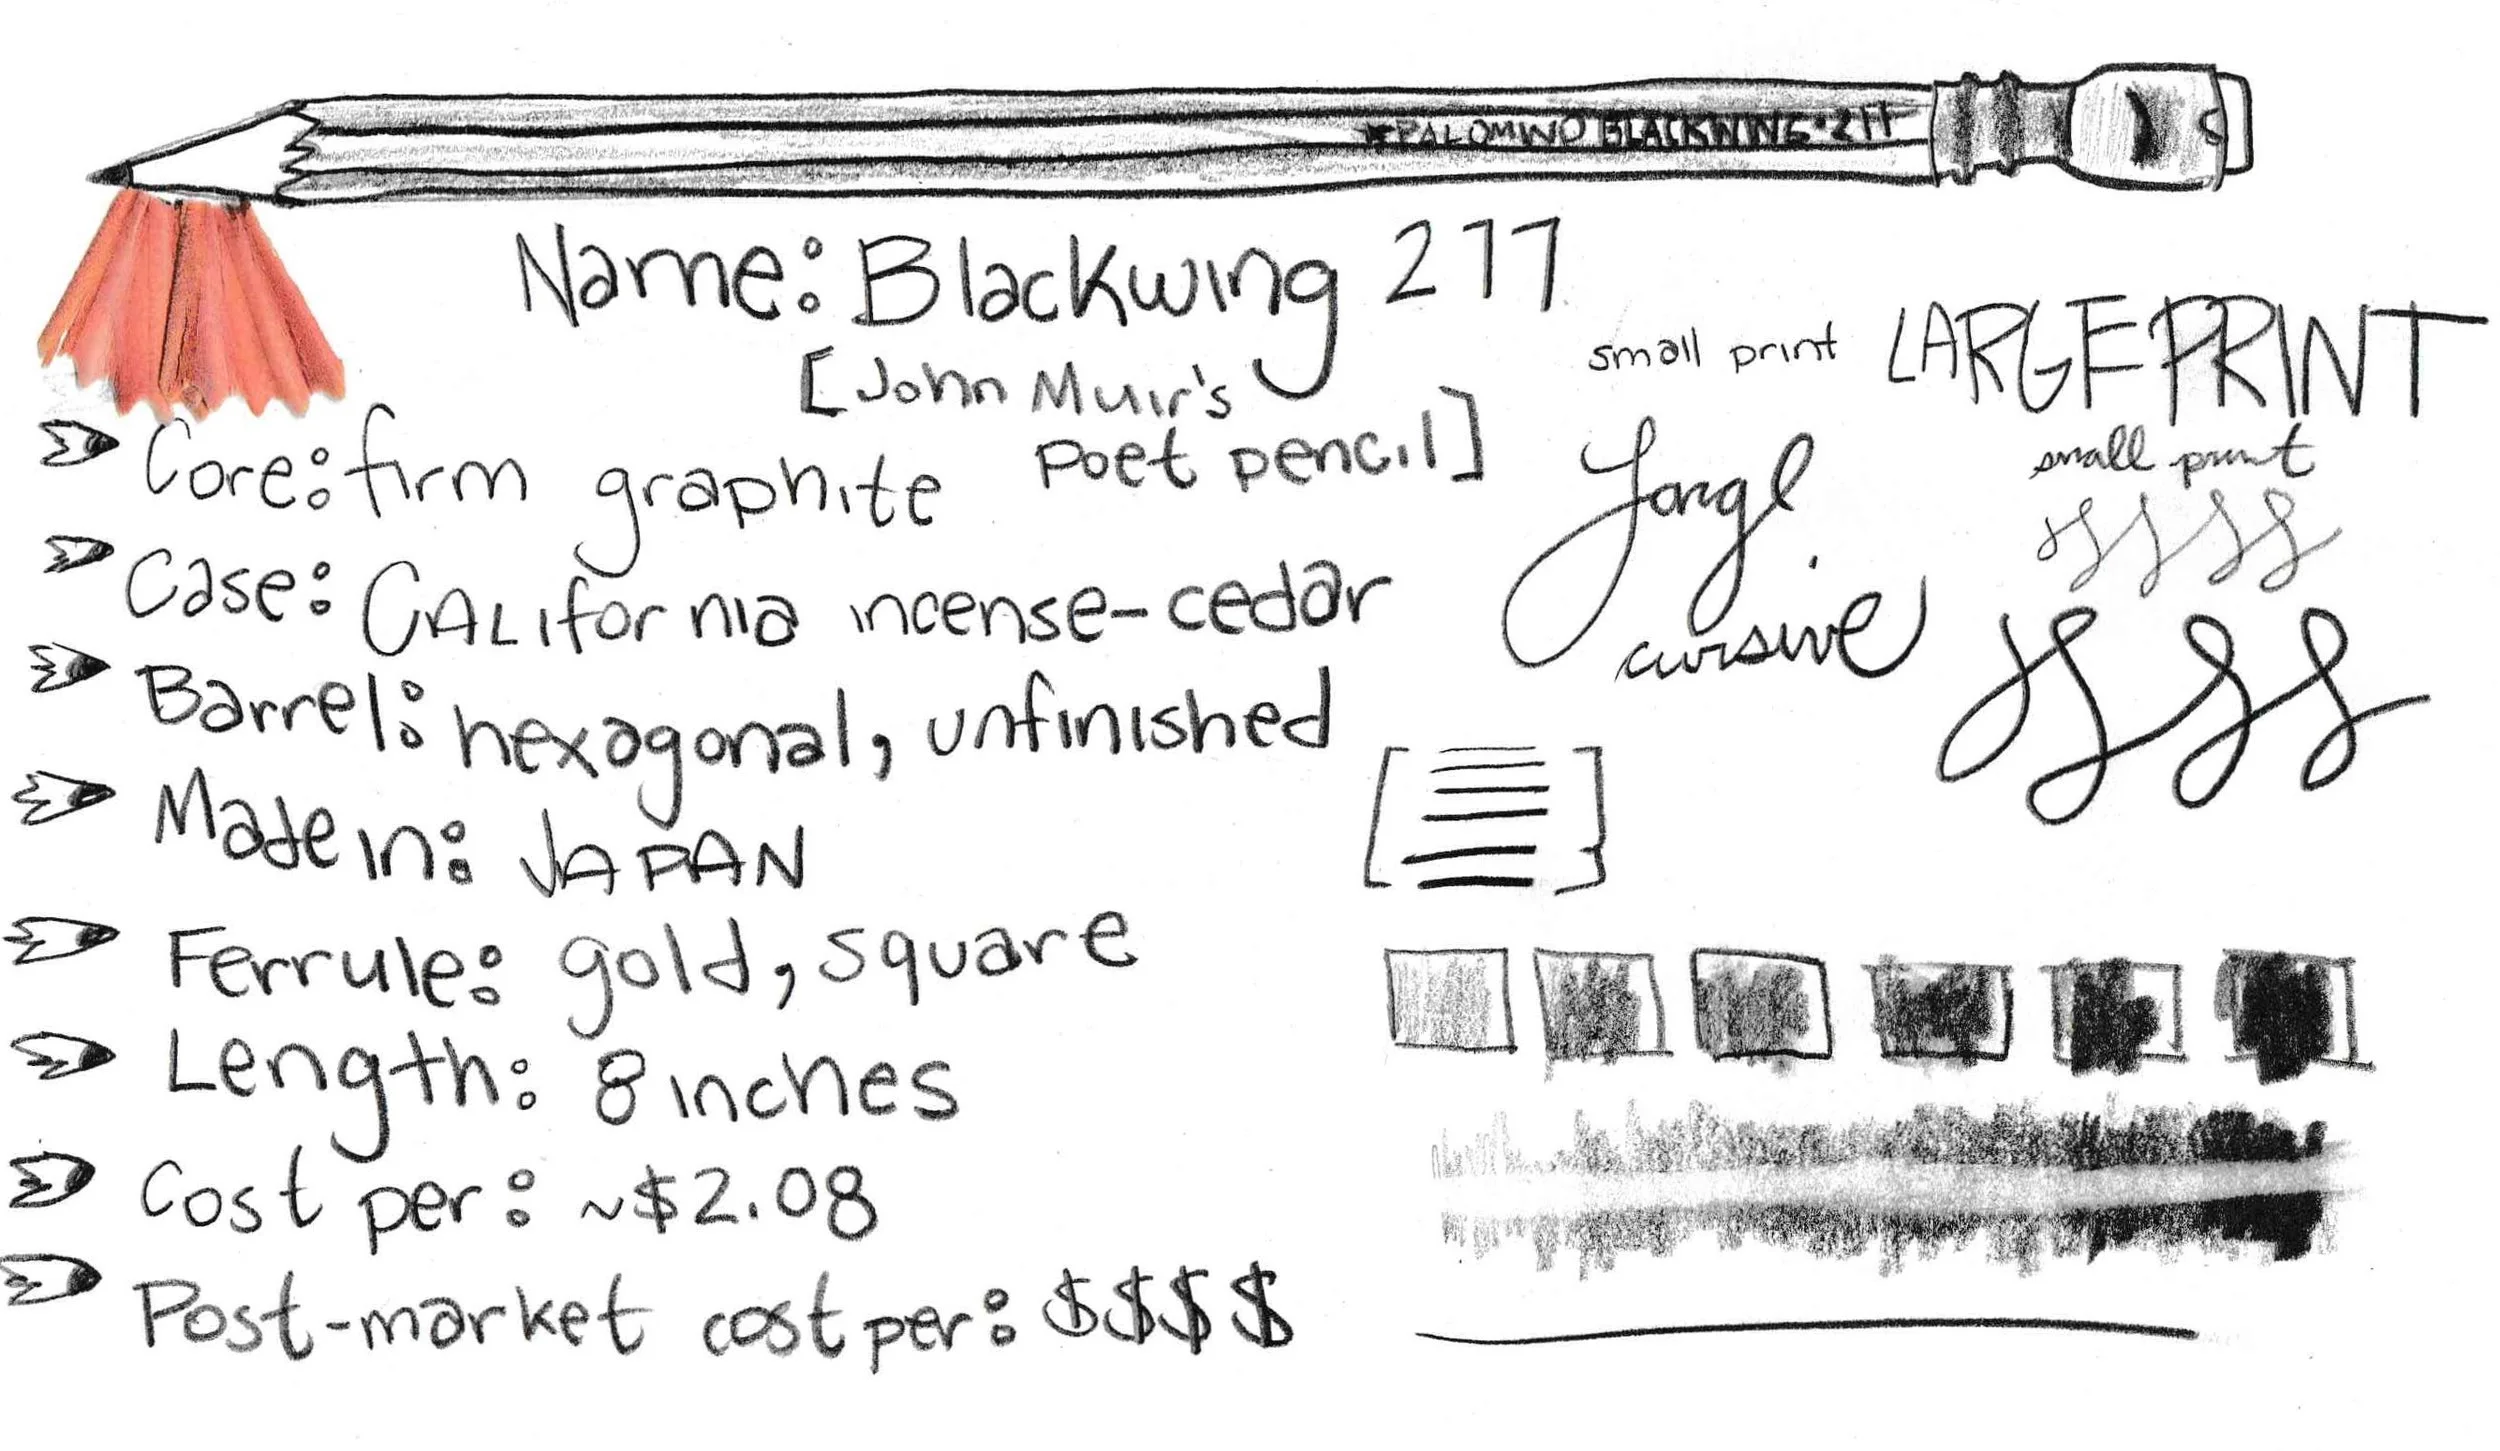 ★PALOMINO BLACKWING•211
Name: Blackwing 211
[John Muir's
Poet pencil]
Core: firm graphite
Case: CALifornia incense-cedar
Barrel: hexagonal, unfinished
Made in: JAPAN
Ferrule: gold, square
Length: 8 inches
Cost per: ~$2.08
Post-market cost per: $$$$
small print
LARGE PRINT
small print
cursive